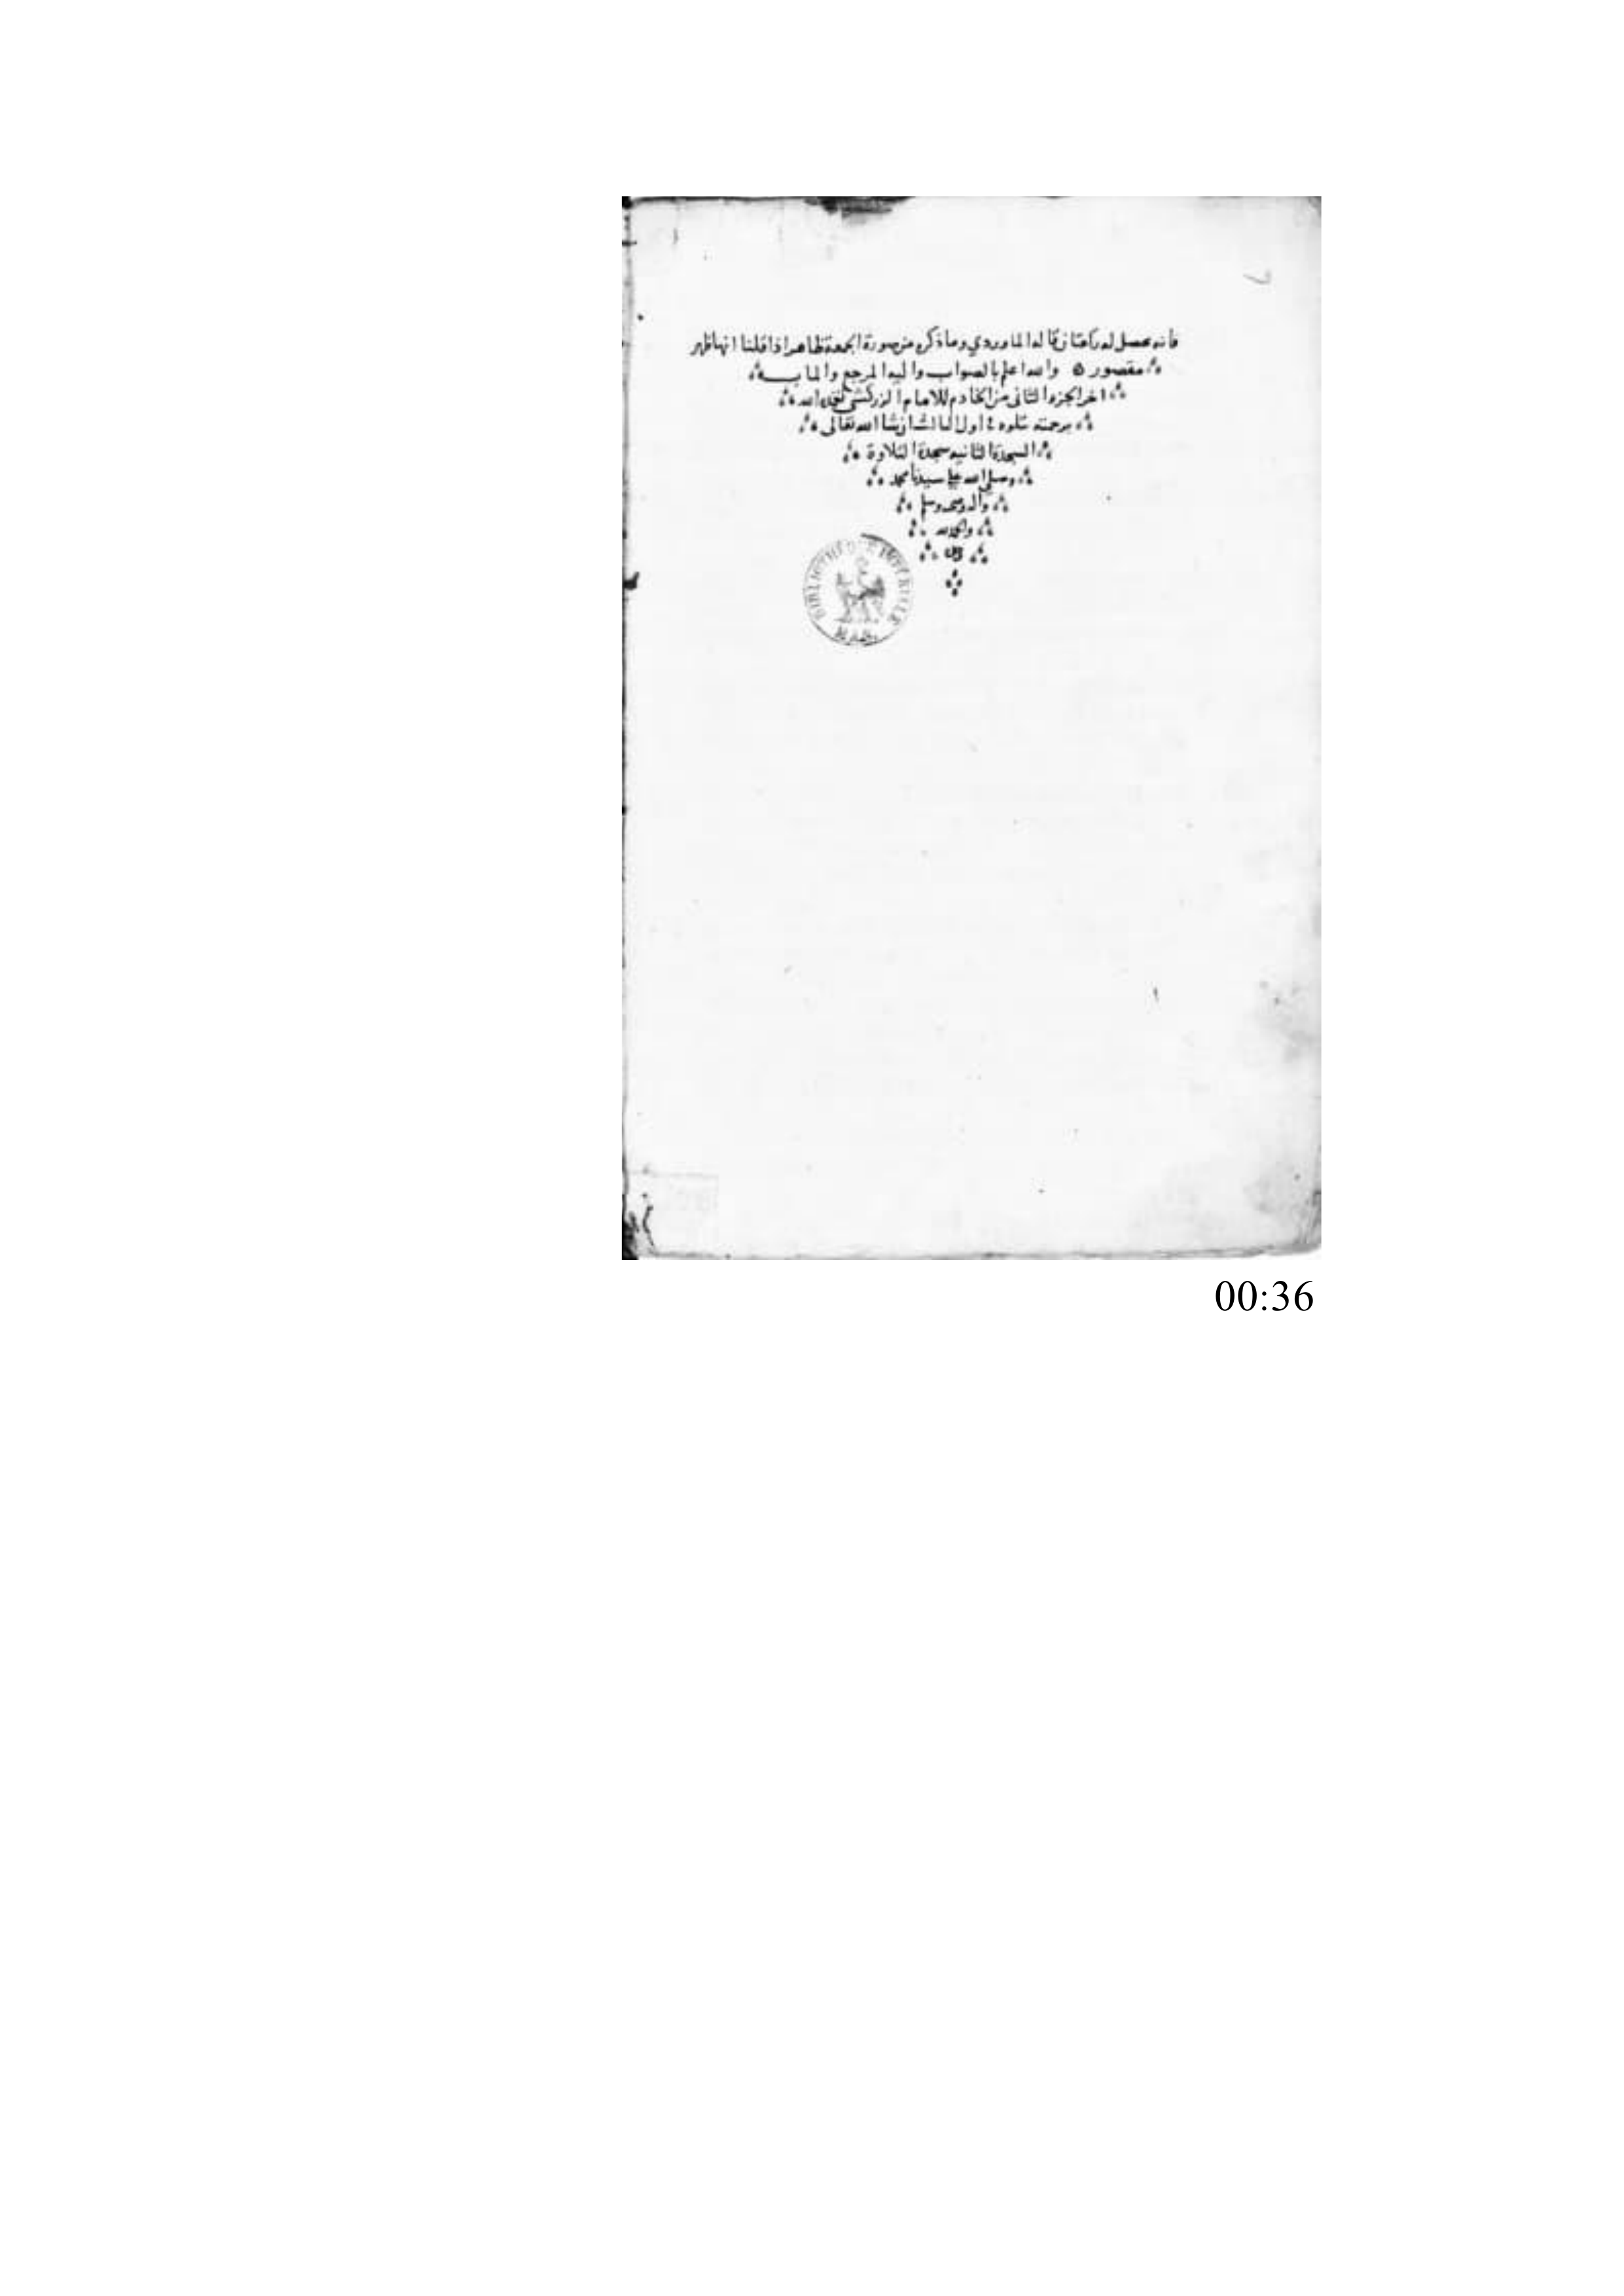 فانه يحصل له ركعتان قاله الماوردي وما ذكره من صورة الجمعة ظاهر اذا قلنا انها ظهر
مقصور ه والله اعلم بالصواب واليه المرجع والماب
اخر الجزء الثاني من الخادم للامام الزركشي تغمده الله
برحمته يتلوه في اول الثالث ان شا الله تعالى
السجدة الثانيه سجدة التلاوة
وصلى الله على سيدنا محمد
واله وصحبه وسلم
والحمد لله
BIBLIOTHÈQUE IMPÉRIALE
MAN.
00:36